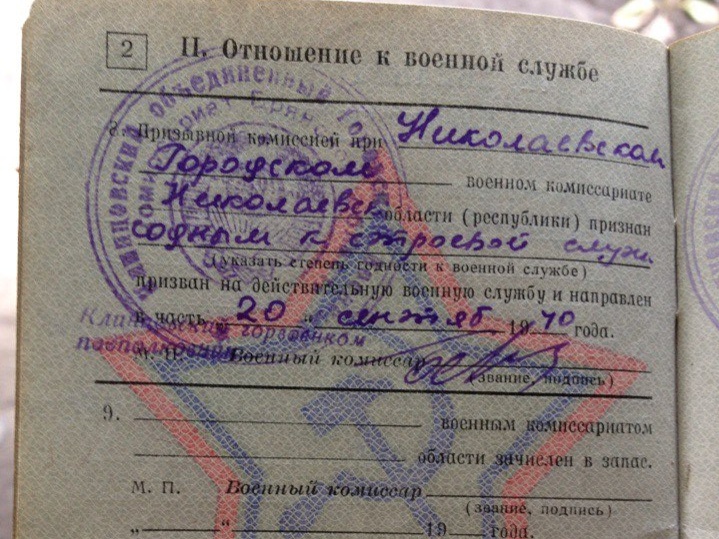 2 II. Отношение к военной службе
8. Призывной комиссией при Николаевском
Городском военном комиссариате
Николаевск области (республики) признан
Годным к строевой служ.
(указать степень годности к военной службе)
призван на действительную военную службу и направлен
в часть „ 20 “ сентяб 1970 года.
Клинцовский горвоенком
подполковник
М. П. Военный комиссар
(звание, подпись)
9. военным комиссариатом
области зачислен в запас.
М. П. Военный комиссар
(звание, подпись)
„ “ 19 года.
объединенный